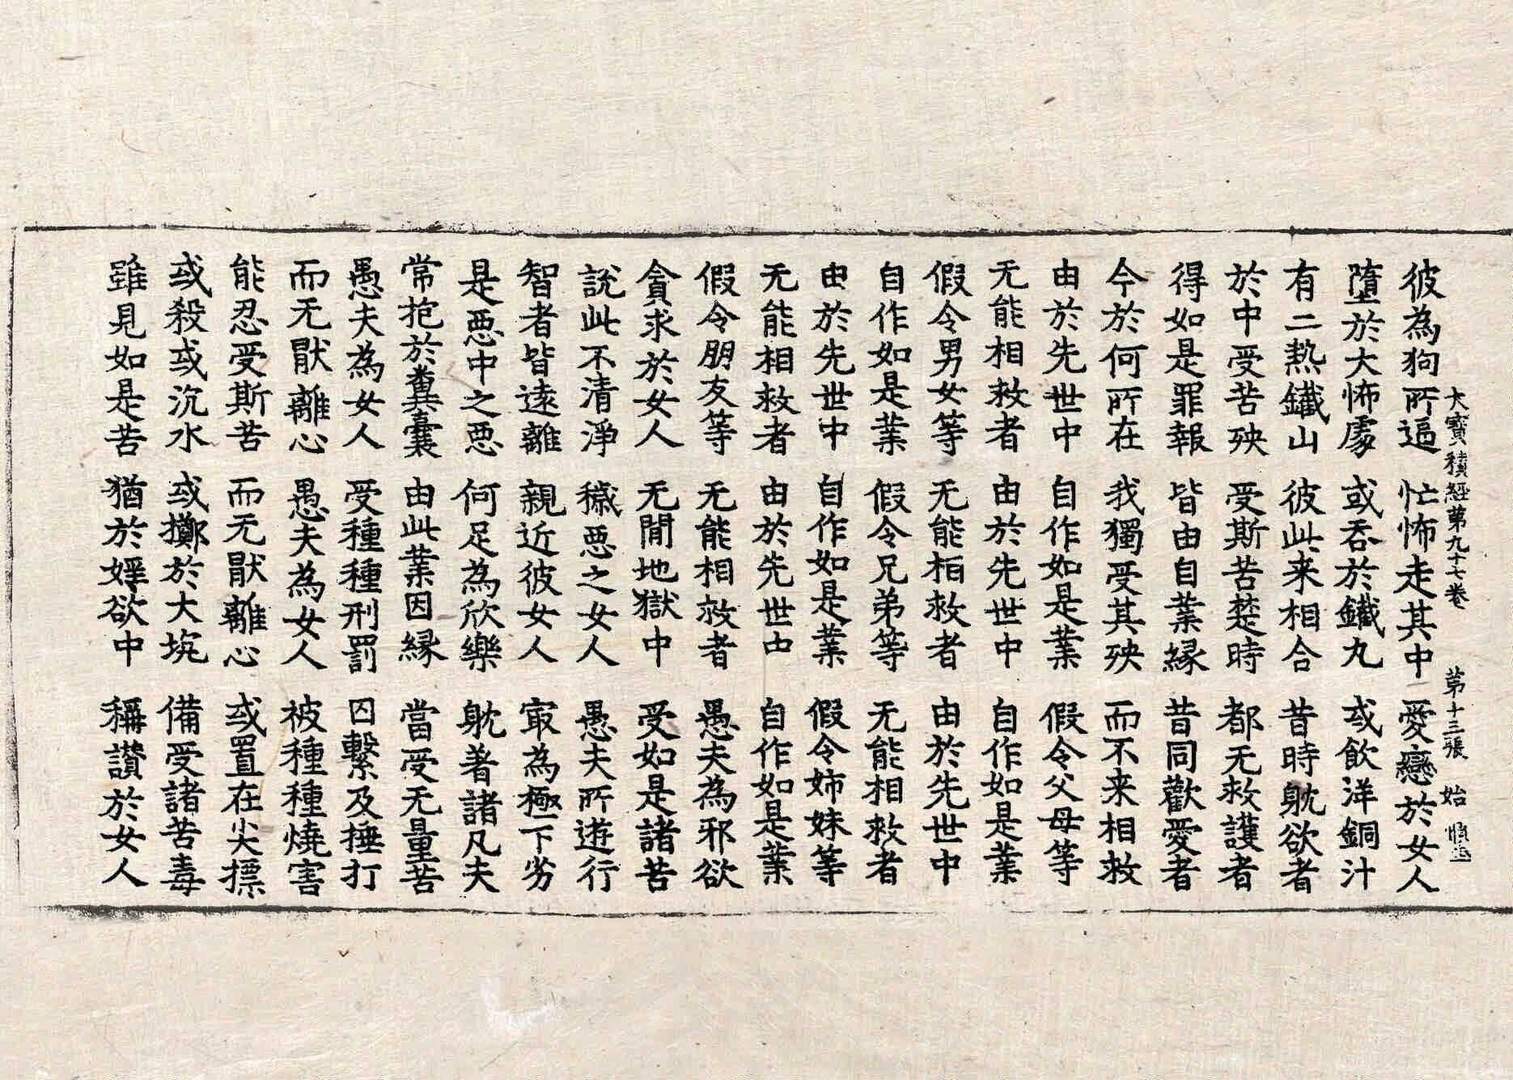 彼為狗所逼 忙怖走其中 愛戀於女人
大寶積經第九十七卷 第十三張 始
墮於大怖處 或吞於鐵丸 或飲洋銅汁
有二熱鐵山 彼此来相合 昔時躭欲者
於中受苦殃 受斯苦楚時 都无救護者
得如是罪報 皆由自業緣 昔同歡愛者
今於何所在 我獨受其殃 而不来相救
由於先世中 自作如是業 假令父母等
无能相救者 由於先世中 自作如是業
假令男女等 无能相救者 由於先世中
自作如是業 假令兄弟等 无能相救者
由於先世中 自作如是業 假令姉妹等
无能相救者 由於先世中 自作如是業
假令朋友等 无能相救者 愚夫為邪欲
貪求於女人 无間地獄中 受如是諸苦
說此不清淨 穢惡之女人 愚夫所遊行
智者皆遠離 親近彼女人 㝡為極下劣
是惡中之惡 何足為欣樂 躭著諸凡夫
常抱於糞囊 由此業因緣 當受无量苦
愚夫為女人 受種種刑罰 囚繫及捶打
而无猒離心 愚夫為女人 被種種燒害
能忍受斯苦 而无猒離心 或置在尖摽
或殺或沉水 或擲於大坑 備受諸苦毒
雖見如是苦 猶於婬欲中 稱讃於女人